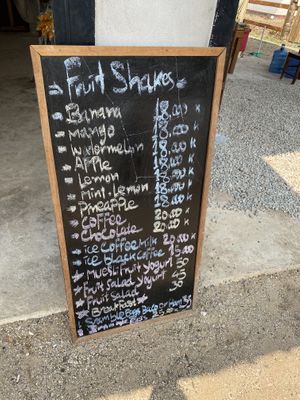 Fruit Shakes
Banana 18.00 K
mango 18.00 K
watermelon 18.00 K
APPle 18.00 K
Lemon 18.00 K
mint.Lemon 18.00 K
Pineapple
coffee 20.00 K
chocolate 20.00 K
ice coffee milk 20.00 K
ice black coffee 15.00
muesli fruit yogurt 50
Fruit Salad yogurt 45
Fruit Salad 30
Breakfast
Scramble Eggs Baco or Ham 35